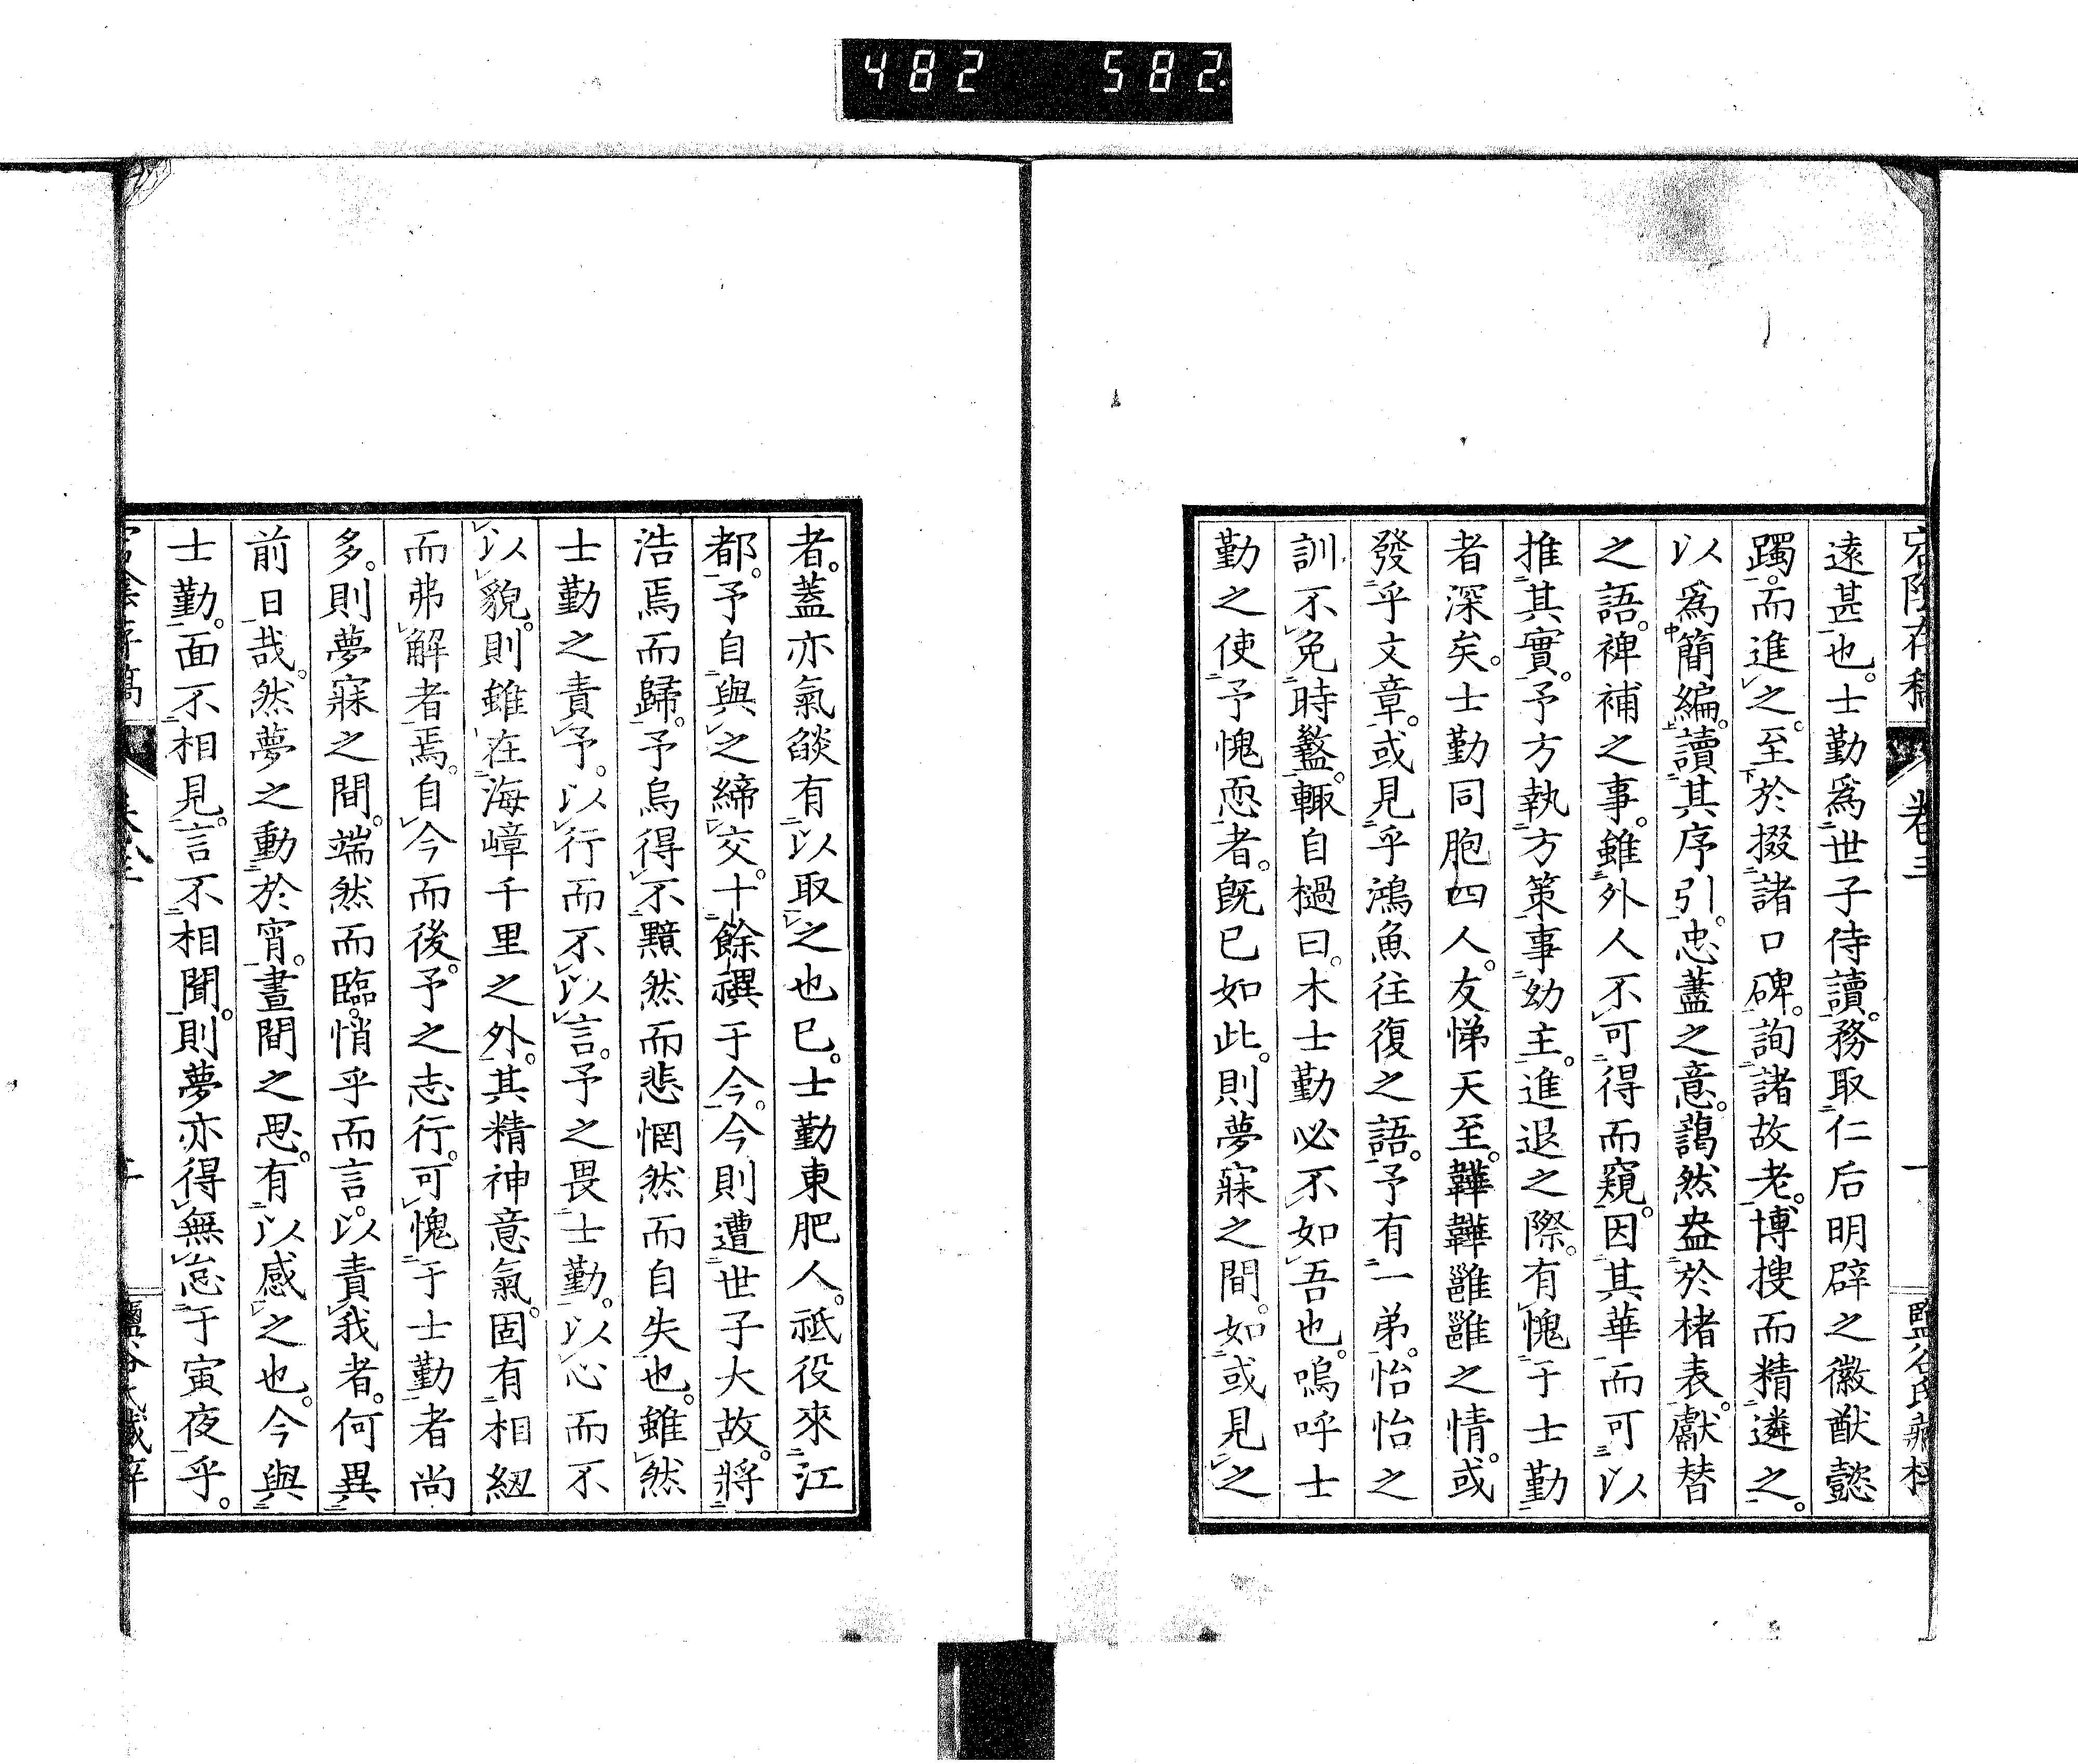 482 582.
宕陰存稿 卷三 十 鹽谷氏藏梓
遠甚也。士勤爲世子侍讀。務取仁后明辟之徽猷懿
躅。而進之。至於掇諸口碑。詢諸故老。博搜而精遴之。
以爲簡編。讀其序引。忠藎之意。藹然盎於楮表。獻替
之語。裨補之事。雖外人不可得而窺。因其華而可以
推其實。予方執方策事幼主。進退之際。有愧于士勤
者深矣。士勤同胞四人。友悌天至。韡韡雝雝之情。或
發乎文章。或見乎鴻魚往復之語。予有一弟。怡怡之
訓不免時盭。輒自檛曰。木士勤必不如吾也。嗚呼士
勤之使予愧恧者。既已如此。則夢寐之間。如或見之
者。蓋亦氣燄有以取之也已。士勤東肥人。祗役來江
都。予自與之締交。十餘禩于今。今則遭世子大故。將
浩焉而歸。予烏得不黯然而悲惘然而自失也。雖然
士勤之責予。以行而不以言。予之畏士勤。以心而不
以貌。則雖在海嶂千里之外。其精神意氣。固有相紉
而弗解者焉。自今而後。予之志行。可愧于士勤者尚
多。則夢寐之間。端然而臨。悄乎而言。以責我者。何異
前日哉。然夢之動於宵。晝間之思。有以感之也。今與
士勤。面不相見。言不相聞。則夢亦得無怠于寅夜乎。
宕陰存稿 卷三 十 鹽谷氏藏梓